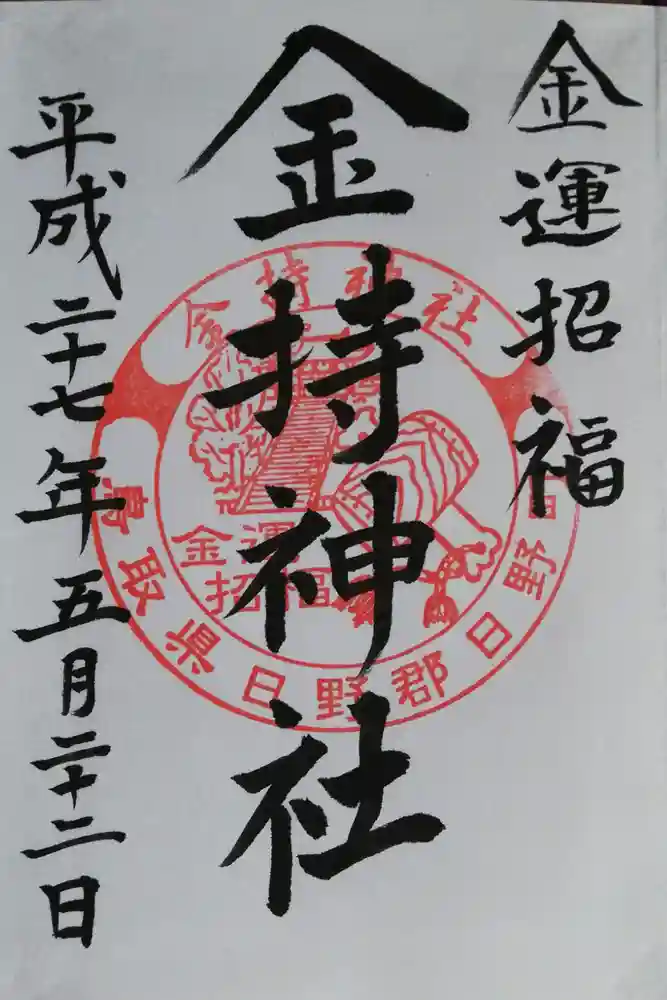 金運招福
金持神社
平成二十七年五月二十二日
金持神社
金運
招福
鳥取県日野郡日野町